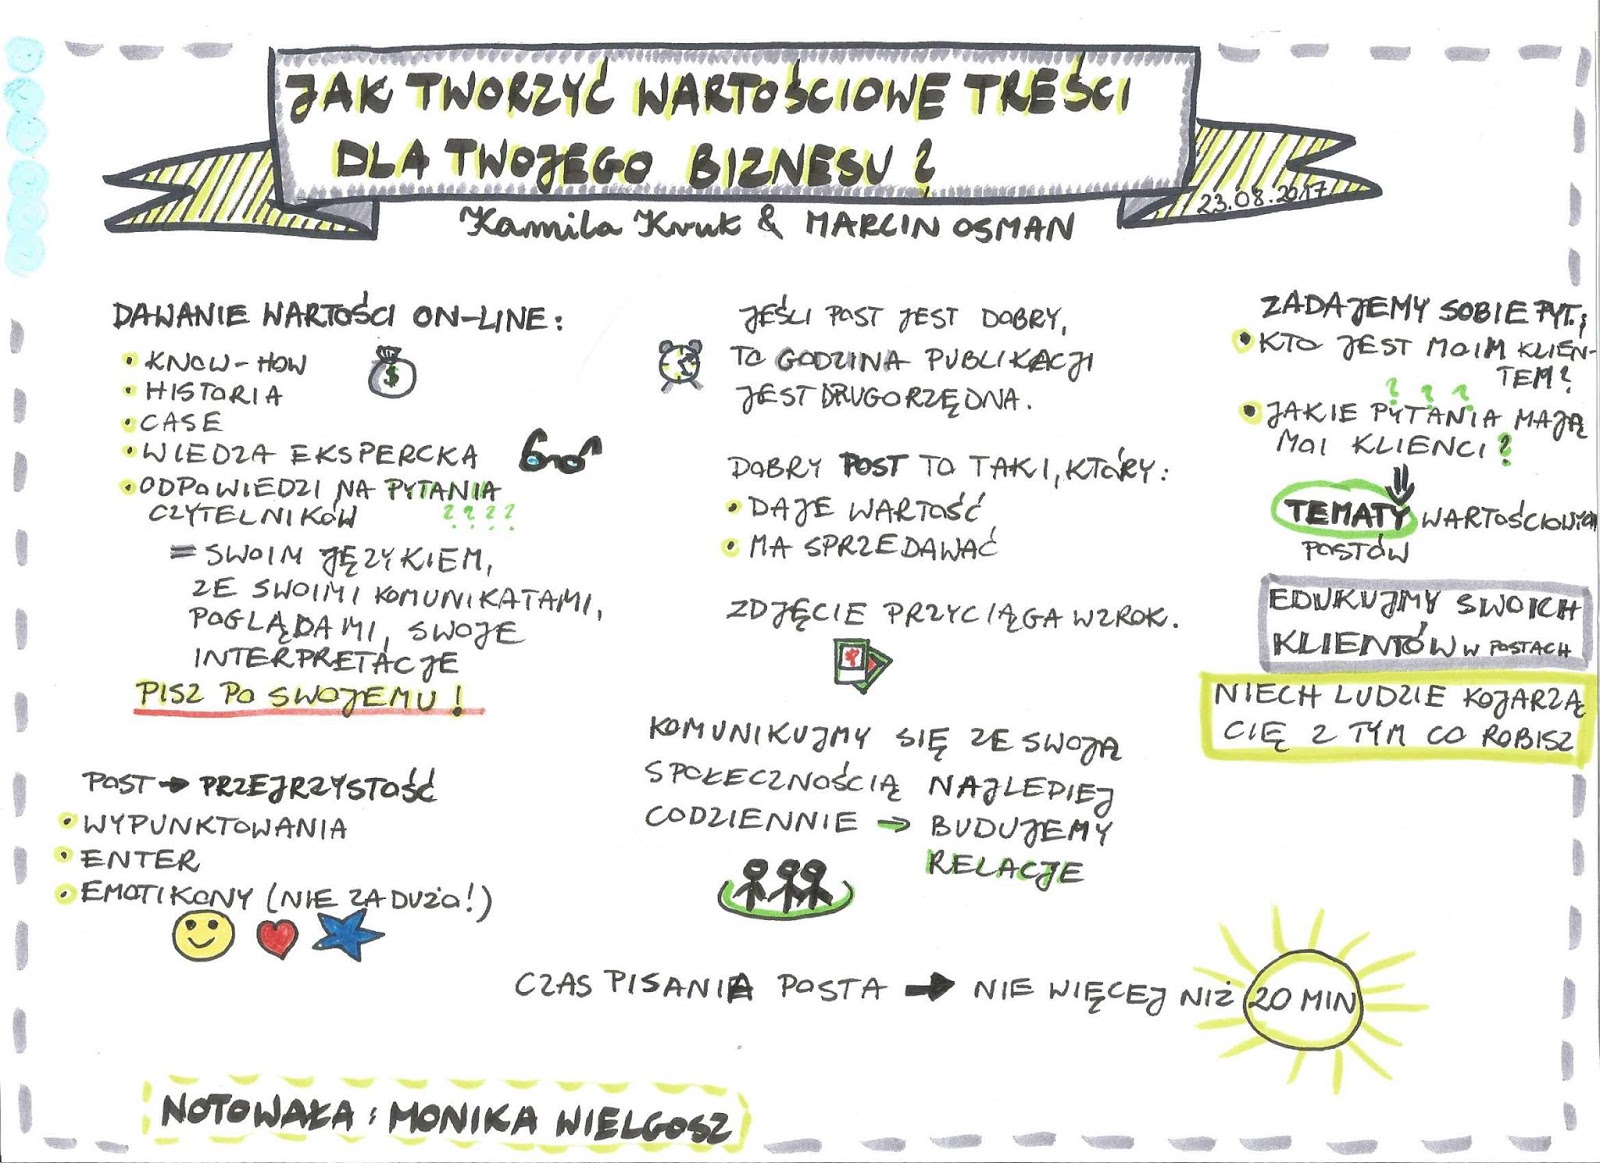 JAK TWORZYĆ WARTOŚCIOWE TREŚCI
DLA TWOJEGO BIZNESU?
23.08.2017
Kamila Kruk & MARCIN OSMAN
DAWANIE WARTOŚCI ON-LINE:
• KNOW-HOW
• HISTORIA
• CASE
• WIEDZA EKSPERCKA
• ODPOWIEDZI NA PYTANIA
CZYTELNIKÓW
? ? ? ?
= SWOIM JĘZYKIEM,
ZE SWOIMI KOMUNIKATAMI,
POGLĄDAMI, SWOJE
INTERPRETACJE
PISZ PO SWOJEMU!
POST → PRZEJRZYSTOŚĆ
• WYPUNKTOWANIA
• ENTER
• EMOTIKONY (NIE ZA DUŻO!)
JEŚLI POST JEST DOBRY,
TO GODZINA PUBLIKACJI
JEST DRUGORZĘDNA.
DOBRY POST TO TAKI, KTÓRY:
• DAJE WARTOŚĆ
• MA SPRZEDAWAĆ
ZDJĘCIE PRZYCIĄGA WZROK.
KOMUNIKUJMY SIĘ ZE SWOJĄ
SPOŁECZNOŚCIĄ NAJLEPIEJ
CODZIENNIE → BUDUJEMY
RELACJE
ZADAJEMY SOBIE PYT.:
• KTO JEST MOIM KLIEN-
TEM?
? ? ?
• JAKIE PYTANIA MAJĄ
MOI KLIENCI?
⇓
TEMATY WARTOŚCIOWYCH
POSTÓW
EDUKUJMY SWOICH
KLIENTÓW W POSTACH
NIECH LUDZIE KOJARZĄ
CIĘ Z TYM CO ROBISZ
CZAS PISANIA POSTA → NIE WIĘCEJ NIŻ 20 MIN
NOTOWAŁA: MONIKA WIELGOSZ